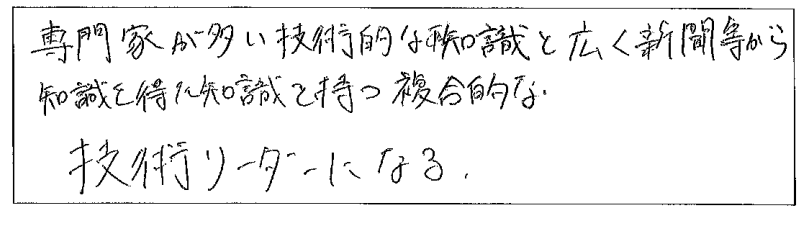 専門家が多い技術的な知識と広く新聞等から
知識を得た知識を持つ複合的な.
技術リーダーになる.